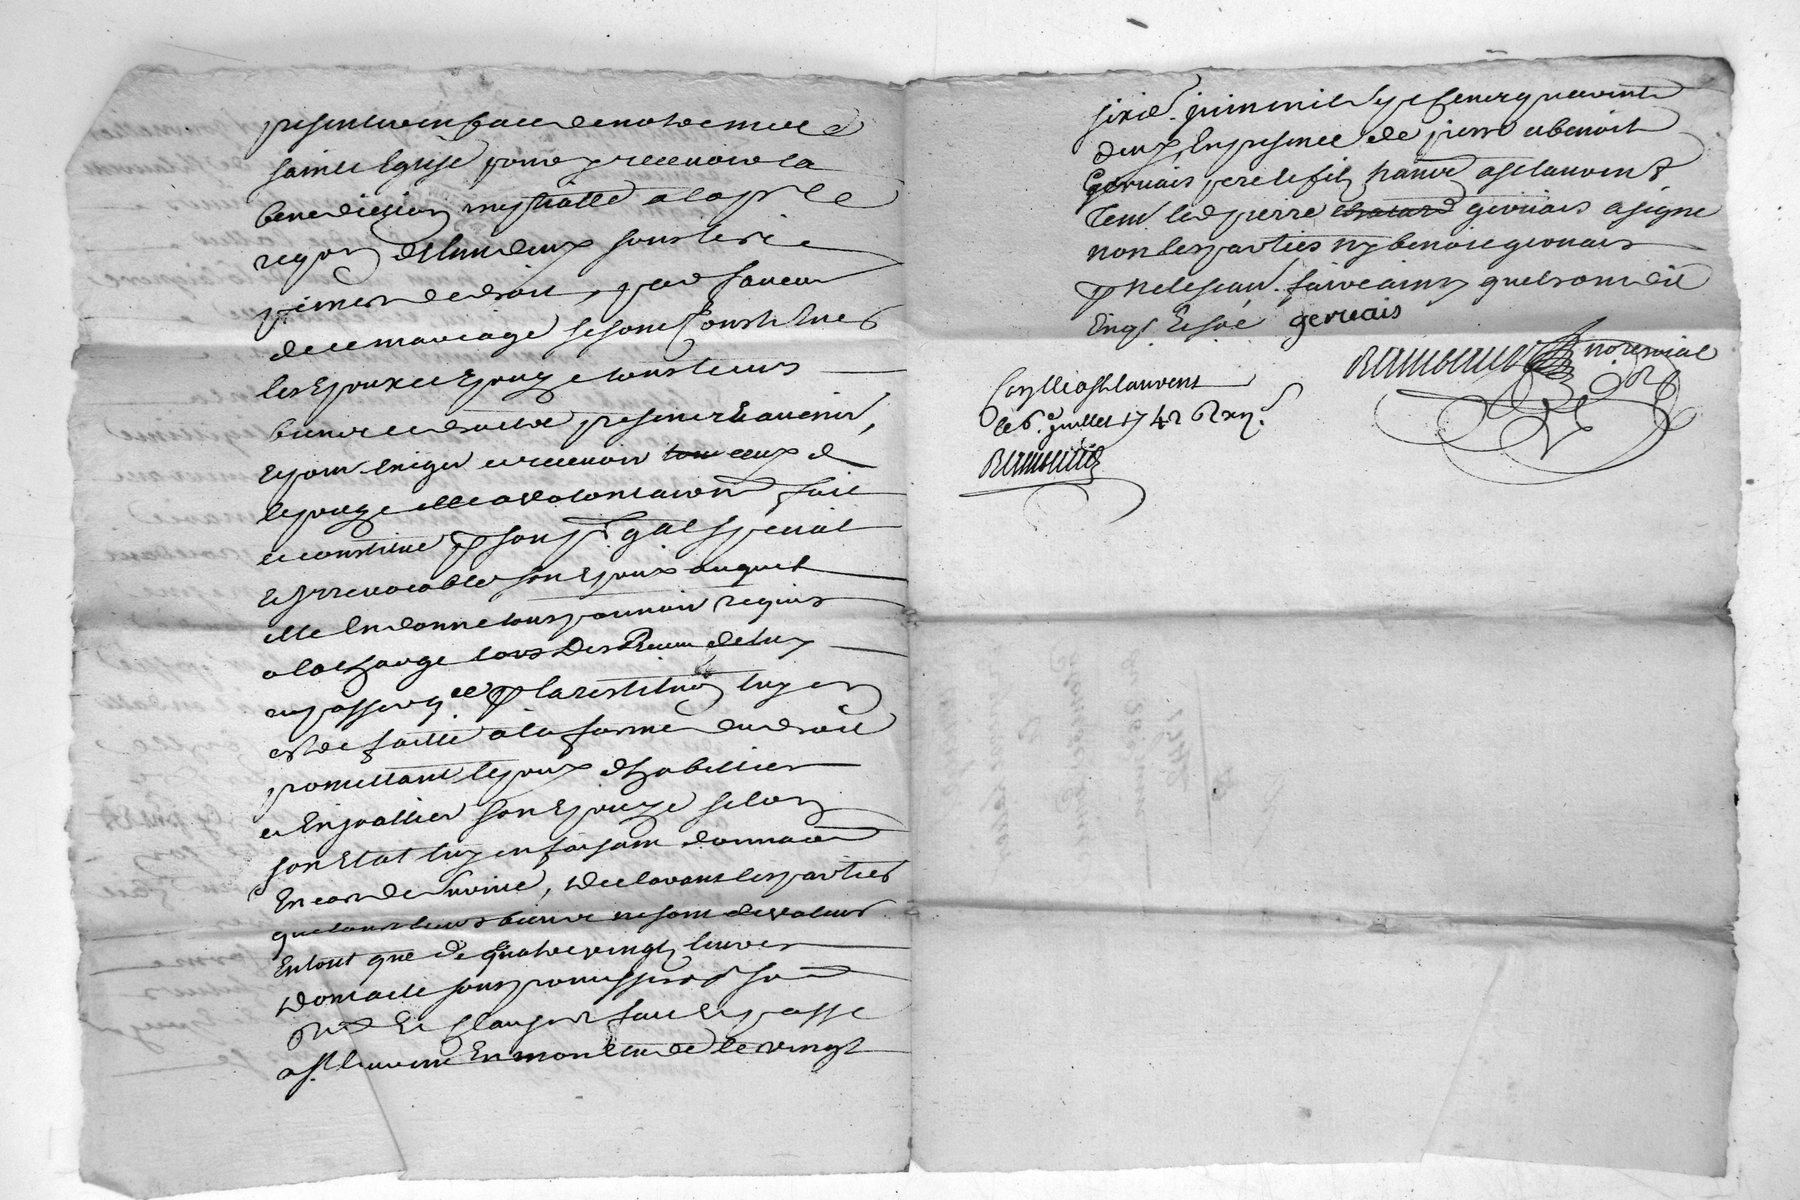 presenter en face de notre mere
sainte Eglise pour y recevoir la
benediction nuptialle a la pre
req~on de l'un deux sous les
peines de droit, par faveur
de ce mariage se sont Constitues
les Epoux et Epouze tous leurs
biens et droits presents & avenir,
et pour Exiger et recevoir tous ceux de
lepouze elle a volontairem fait
et constitué p son pr gnal special
et Irrevocable son Epoux auquel
elle En donne tous pouvoir requis
a la charge lors des de luy
en passer q ce p la restitu~on luy en
estre faitte a la forme du droit
promettant lepoux d'habillier
et Enjoallier son Epouze selon
son Etat luy en faisant donna~on
En cas de survie, declarant les parties
que tous leurs biens ne sont de valeur
En tout que de quatre vingt livres
Dont acte sous promissions
obl & Clauses fait et passé
a st laurens En mon Etude le vingt
sixie juin mil sept cent quarante
deux, En presence de pierre et benoit
Gervais pere et fils a st laurent
tem led pierre gervais a signé
non les parties ny benoit gervais
p ne le scav. faire ainsy quils ont dit
Enqs & soe gervais
no~re royal
Conlle a st laurent
le 6e juillet 1742